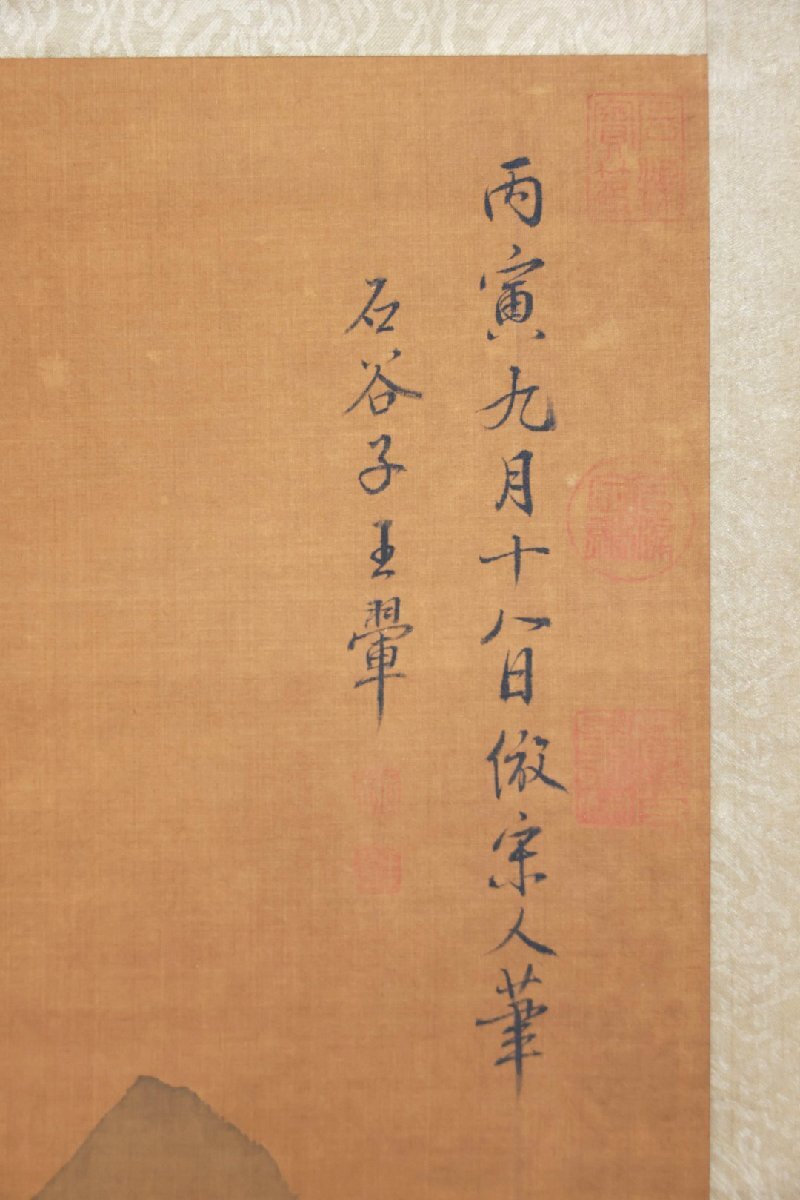 丙寅九月十八日倣宋人筆
石谷子王翬